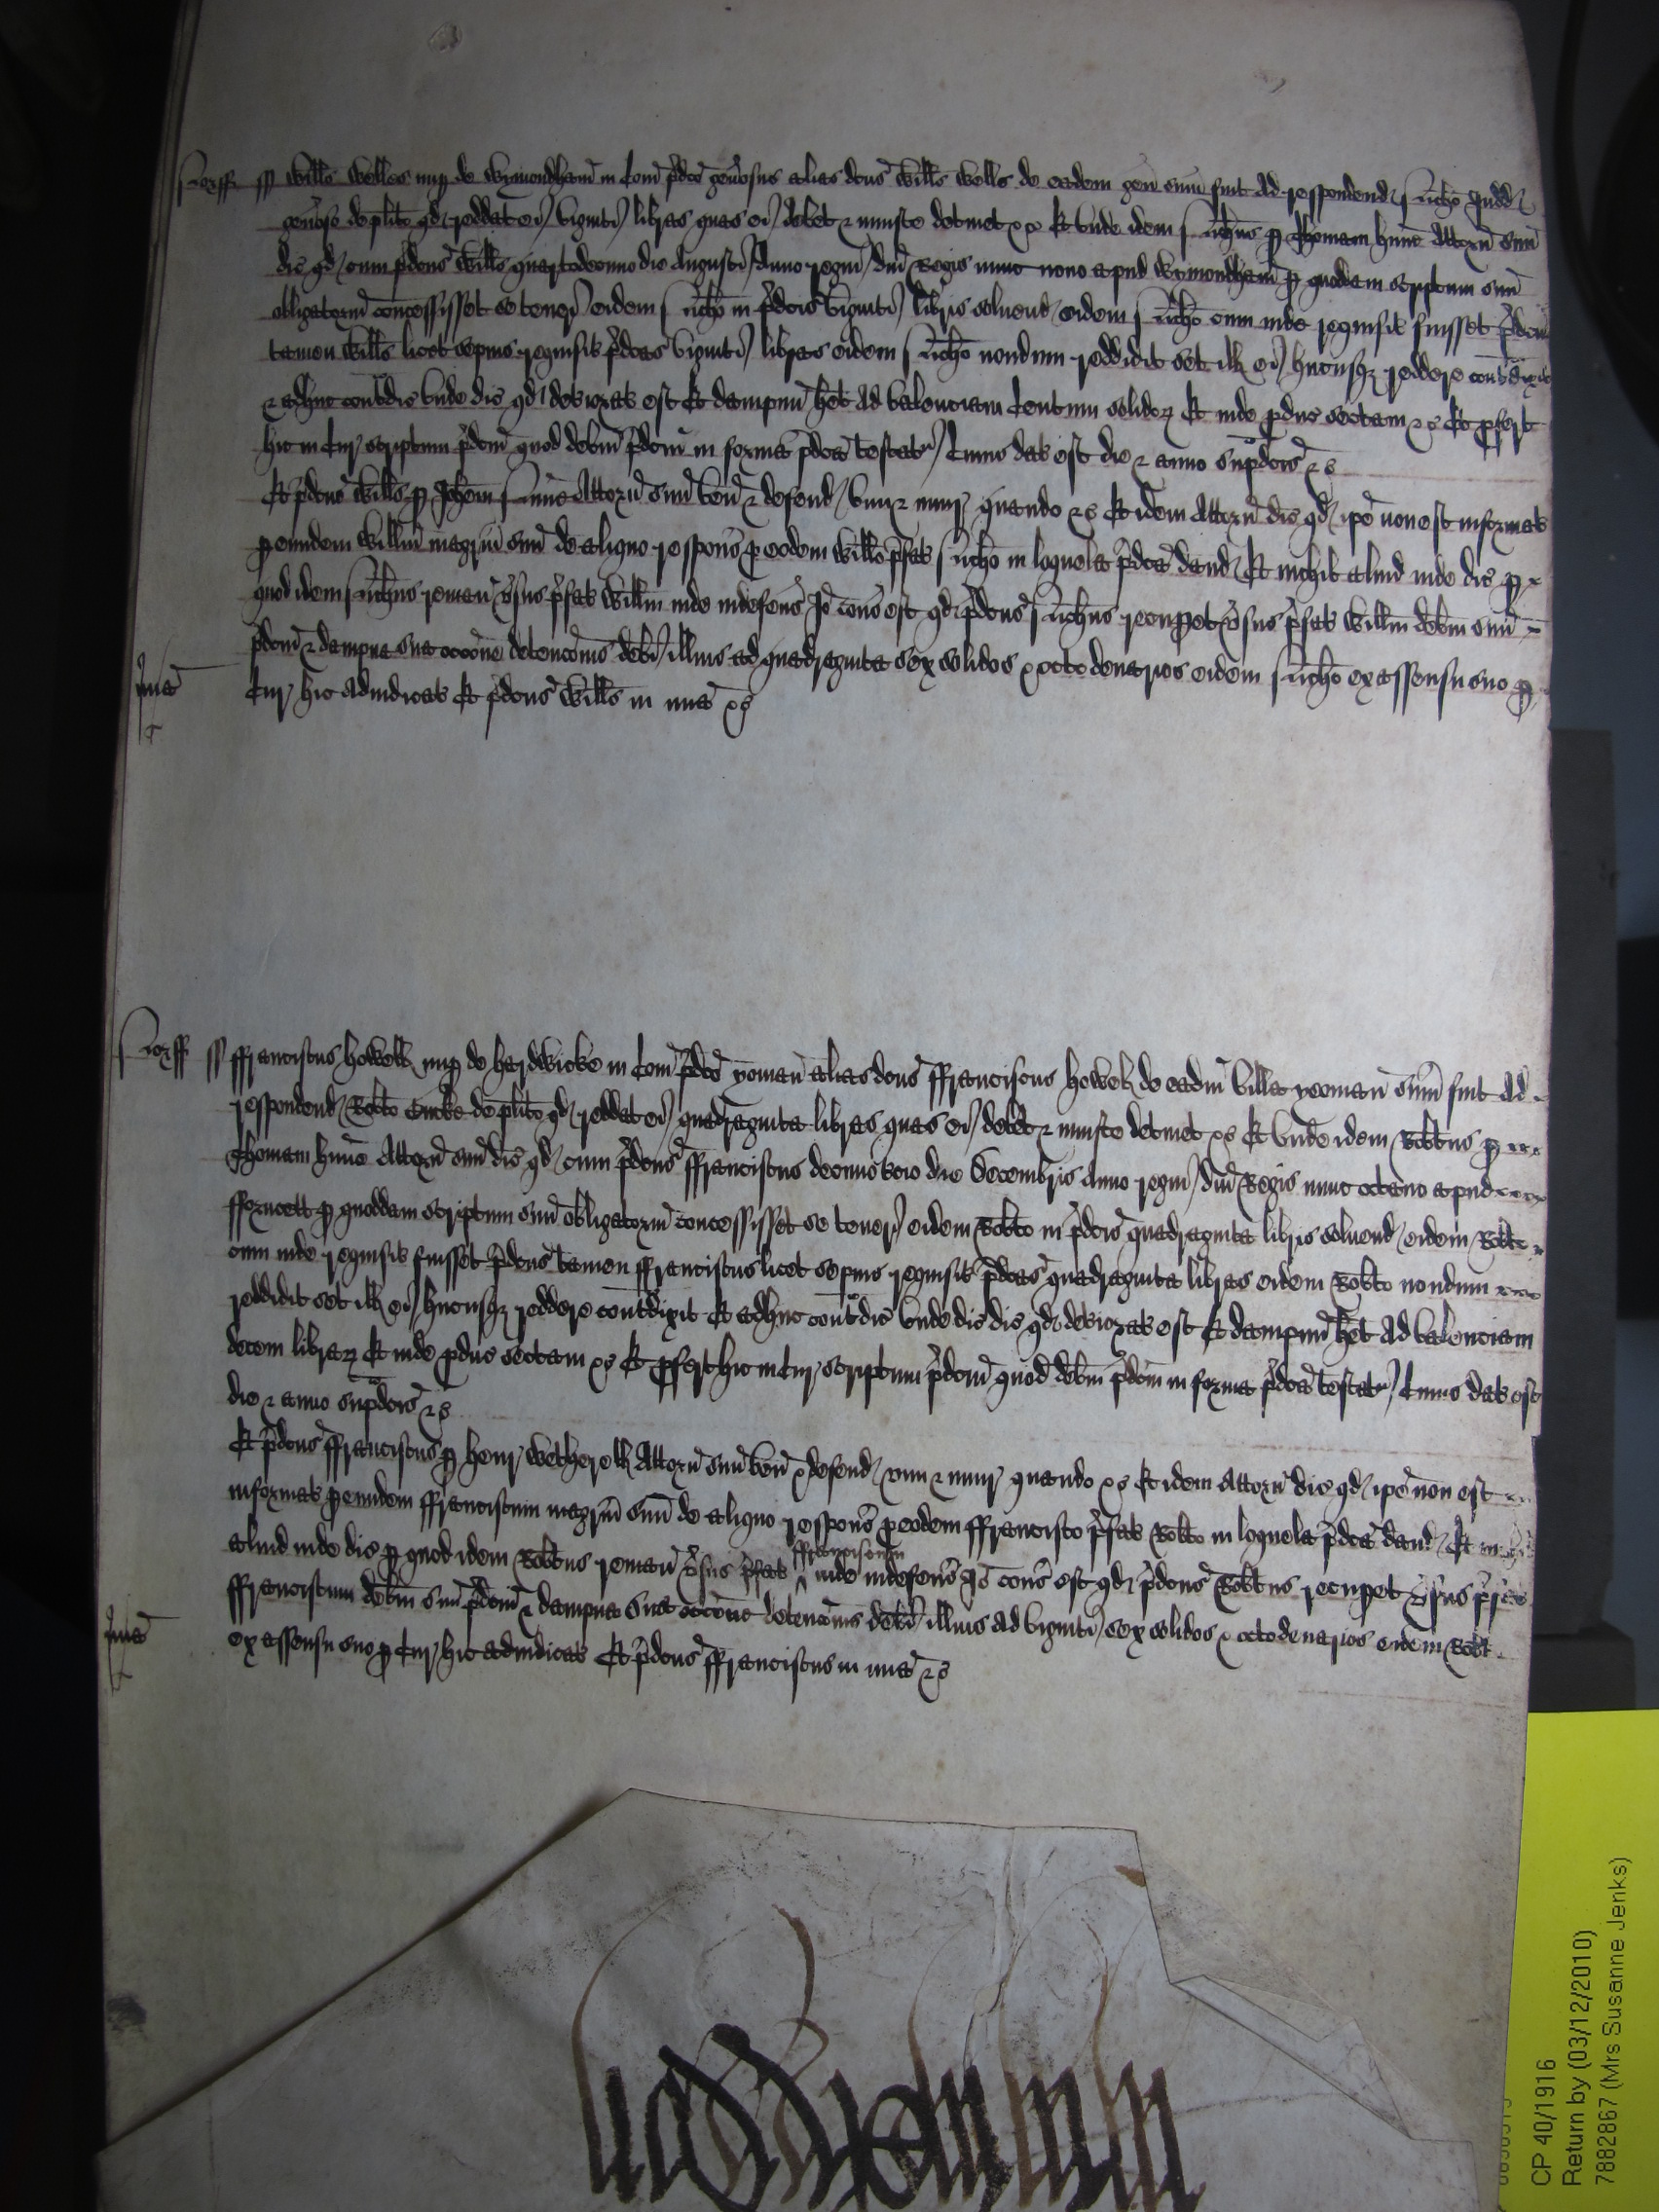 Norff ss Willms Welles nup de Wymondham in Com pdco genosus alias dcus Willms Wells de eadem gen sum fuit ad respondend Nicho
genoso de plito qd reddat ei viginti libras quas ei debet & iniuste detinet &c Et unde idem Nichus p Thomam hune Attorn suu
dic qd cum pdcus Willms quartodecimo die Augusti Anno regni dni Regis nunc nono apud Wymondham p quoddam scriptum suu
obligatoriu concessisset se teneri eidem Nicho in pdcis viginti libris solvend eidem Nicho cum inde requisit fuisset pdcus
tamen Willms licet sepius requisit pdcas viginti libras eidem Nicho nondum reddidit set ill ei hucusq reddere contdixit
& adhuc contdic unde dic qd deteriorat est Et dampnu het ad valenciam Centum solidoz Et inde pduc sectam &c Et pfert
hic in Cur scriptum pdcm quod debm pdcm in forma pdca testat Cuius dat est die & anno supdcis &c
Et pdcus Willms p Johem Attorn suu ven & defend vim & iniur quando &c Et idem Attorn dic qd ipe non est informat
p eundem Willm magrm suu de aliquo respons p eodem Willo pfat Nicho in loquela pdca dand Et nichil aliud inde dic p
quod idem Nichus reman vsus pfat Willm inde indefens Io cons est qd pdcus Nichus recupet vsus pfat Willm debm suu
pdcm & dampna sua occone detencois debi illius ad quadraginta sex solidos & octo denarios eidem Nicho ex assensu suo p
mia Cur hic adiudicat Et pdcus Willms in mia &c
Norff ss ffranciscus howell nup de hardwicke in Com pdco yoman alias dcus ffranciscus howell de eadm villa yeoman sum fuit ad
respondend Robto de plito qd reddat ei quadraginta libras quas ei debet & iniuste detinet &c Et unde idem Robtus p
Thomam hune Attorn suu dic qd cum pdcus ffranciscus decimo die Decembris Anno regni dni Regis nunc octavo apud
fforncett p quoddam scriptum suu obligatoriu concessisset se teneri eidem Robto in pdcis quadraginta libris solvend eidem Robto
cum inde requisit fuisset pdcus tamen ffranciscus licet sepius requisit pdcas quadraginta libras eidem Robto nondum
reddidit set ill ei hucusq reddere contdixit Et adhuc contdic unde dic dic qd deteriorat est Et dampnu het ad valenciam
decem libraz Et inde pduc sectam &c Et pfert hic in Cur scriptum pdcm quod debm pdcm in forma pdca testat Cuius dat est
die & anno supdcis &c
Et pdcus ffranciscus p henr wetherell Attorn suu ven & defend vim & iniur quando &c Et idem Attorn dic qd ipe non est
informat p eundem ffranciscum magrm suu de aliquo respons p eodem ffrancisco pfat Robto in loquela pdca dand Et
aliud inde dic p quod idem Robtus reman vsus pfat ffranciscum inde indefens Io cons est qd pdcus Robtus recupet vsus pfat
ffranciscum debm suu pdcm & dampna sua occone detencois debi illius ad viginti sex solidos & octo denarios eidem Robto
mia ex assensu suo p Cur hic adiudicat Et pdcus ffranciscus in mia &c
CP 40/1916
Return by (03/12/2010)
7882867 (Mrs Susanne Jenks)